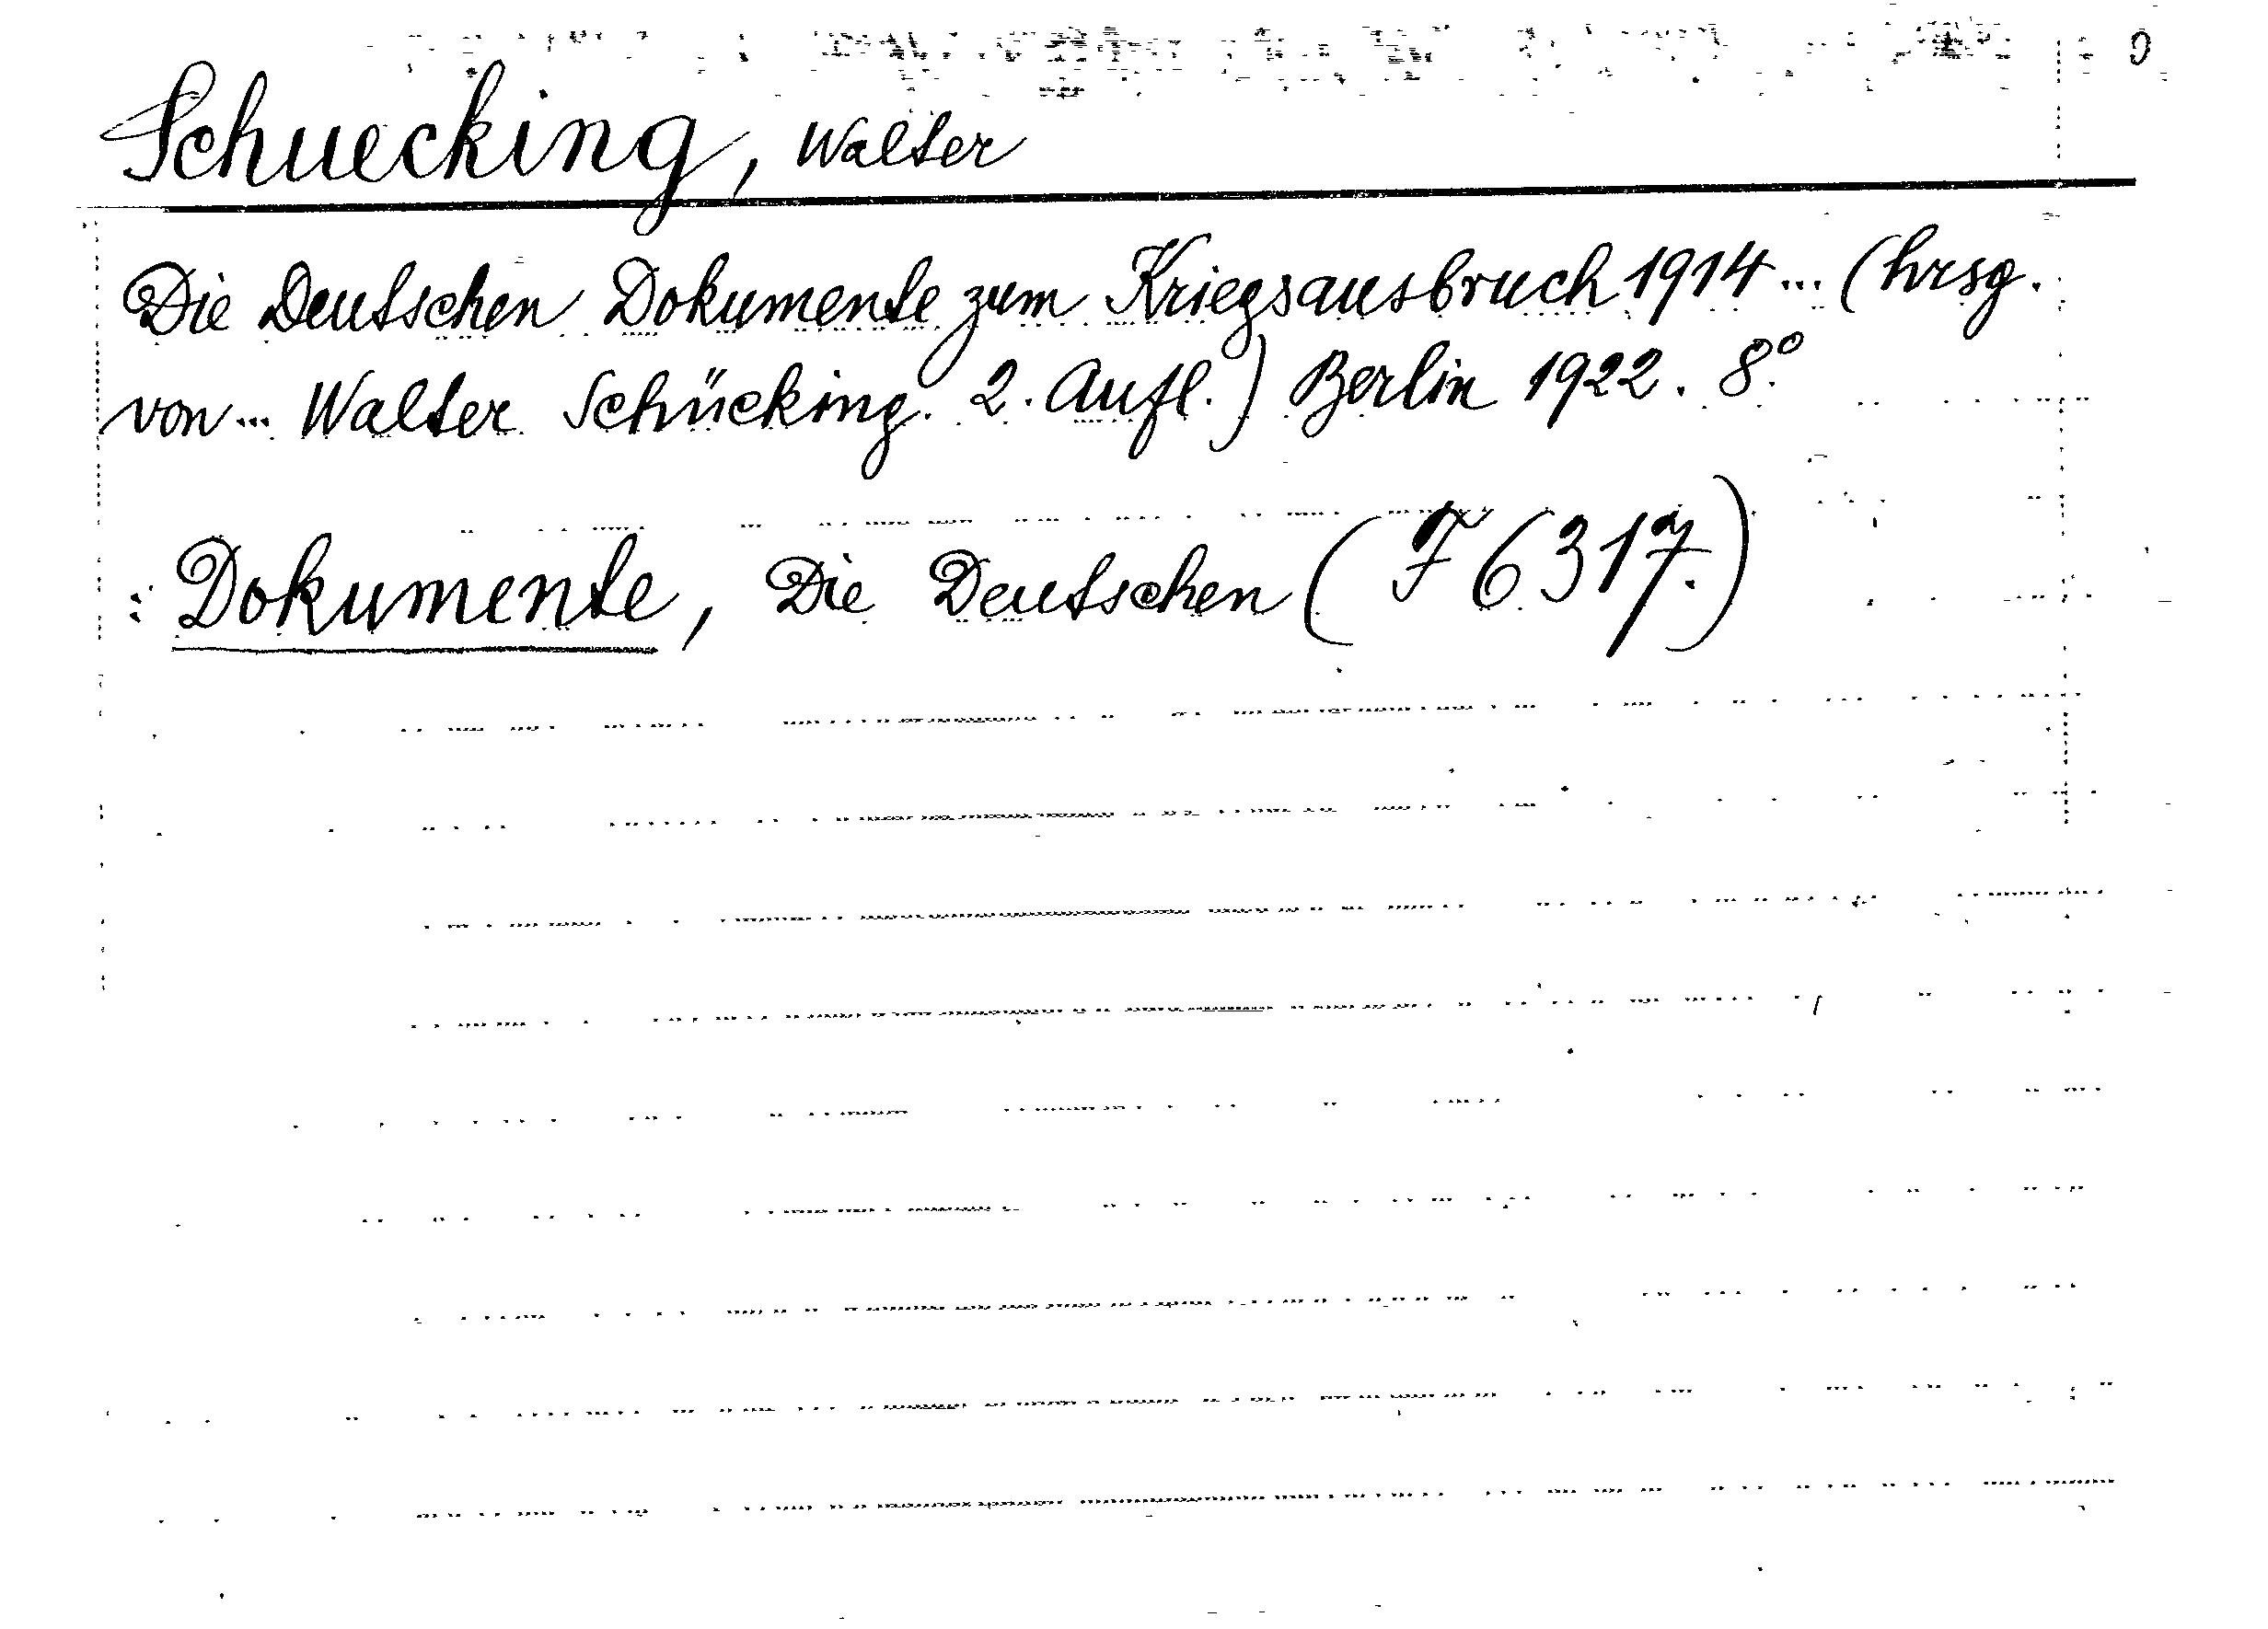 Schuecking, Walter
Die Deutschen Dokumente zum Kriegsausbruch 1914 ... (hrsg.
von ... Walter Schücking. 2. Aufl.) Berlin 1922. 8.°
: Dokumente, Die Deutschen (F 6317.)